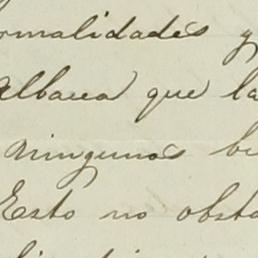 ormalidades y
Albacea que la
ningunos bi
Esto no obsta